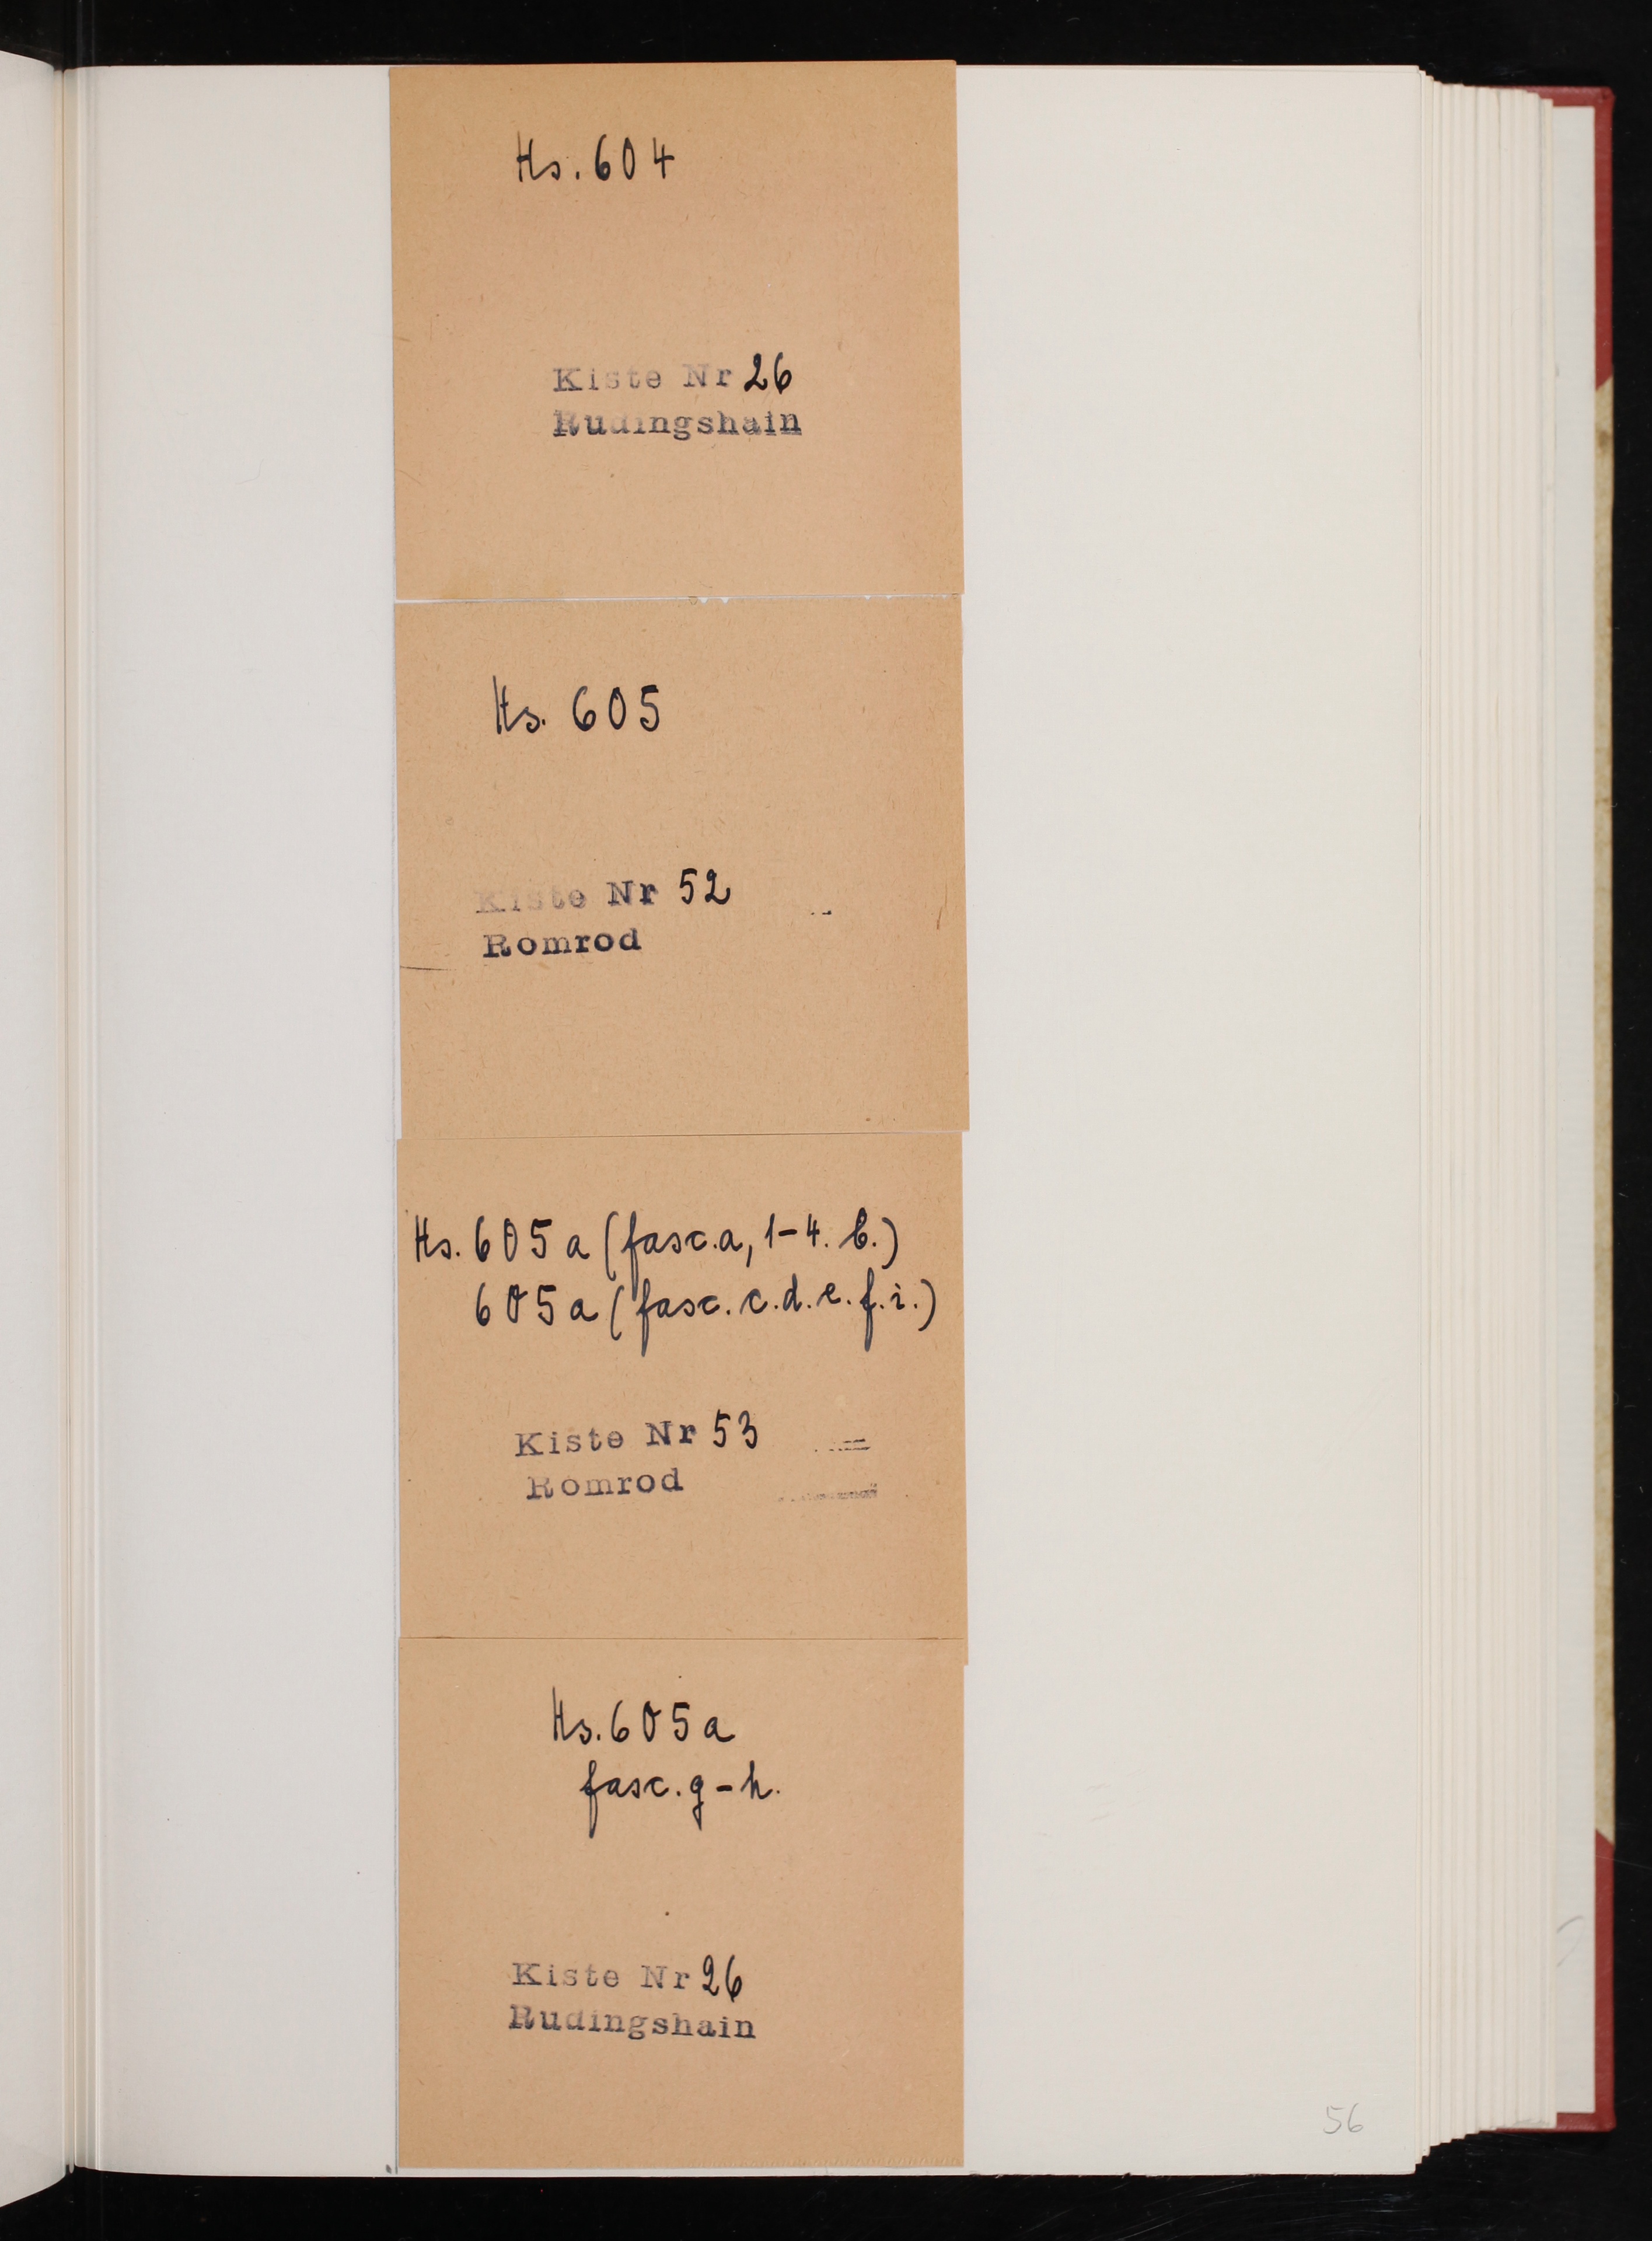 Hs. 604
Kiste Nr 26
Rudingshain
Hs. 605
Kiste Nr 52
Romrod
Hs. 605 a (fasc. a, 1-4. b.)
605 a (fasc. c. d. e. f. i.)
Kiste Nr 53
Romrod
Hs. 605 a
fasc. g-h.
Kiste Nr 26
Rudingshain
56